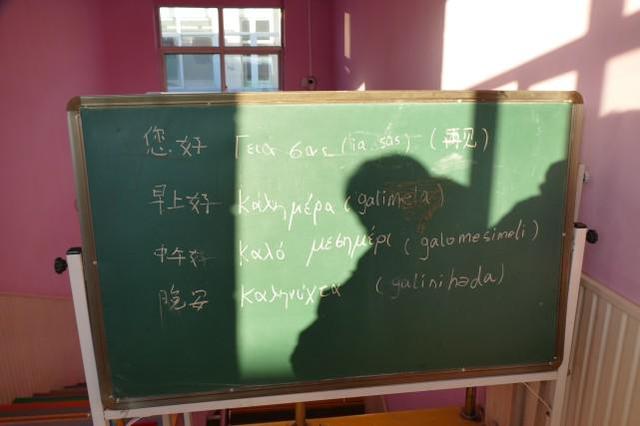 您好 Γεια σας (ia sas) (再见)
早上好 Καλημέρα (galimela)
中午好 Καλό μεσημέρι (galomesimeli)
晚安 Καληνύχτα (galinihəda)